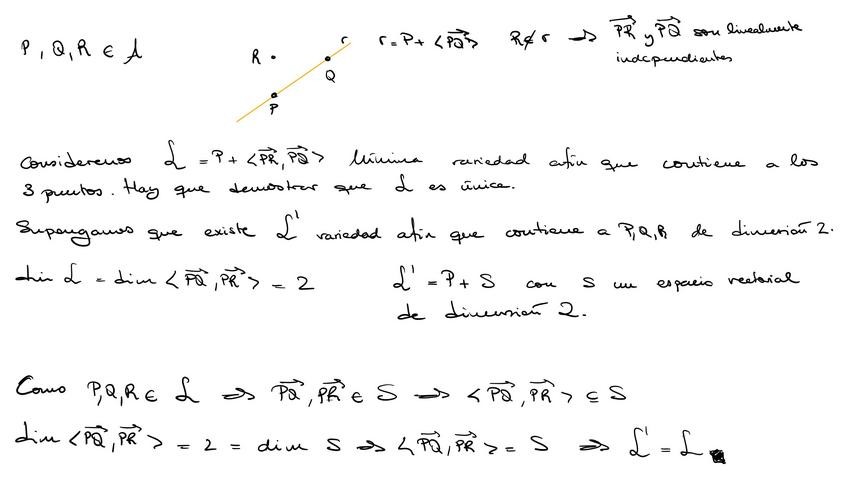 P, Q, R ∈ A
R r Q P
r = P + <PQ→> R ∉ r ⇒ PR→ y PQ→ son linealmente
independientes
Consideremos L = P + <PR→, PQ→> Mínima variedad afín que contiene a los
3 puntos. Hay que demostrar que L es única.
Supongamos que existe L' variedad afín que contiene a P,Q,R de dimensión 2.
dim L = dim <PQ→, PR→> = 2
L' = P + S con S un espacio vectorial
de dimensión 2.
Como P,Q,R ∈ L ⇒ PQ→, PR→ ∈ S ⇒ <PQ→, PR→> ⊆ S
dim <PQ→, PR→> = 2 = dim S ⇒ <PQ→, PR→> = S ⇒ L' = L